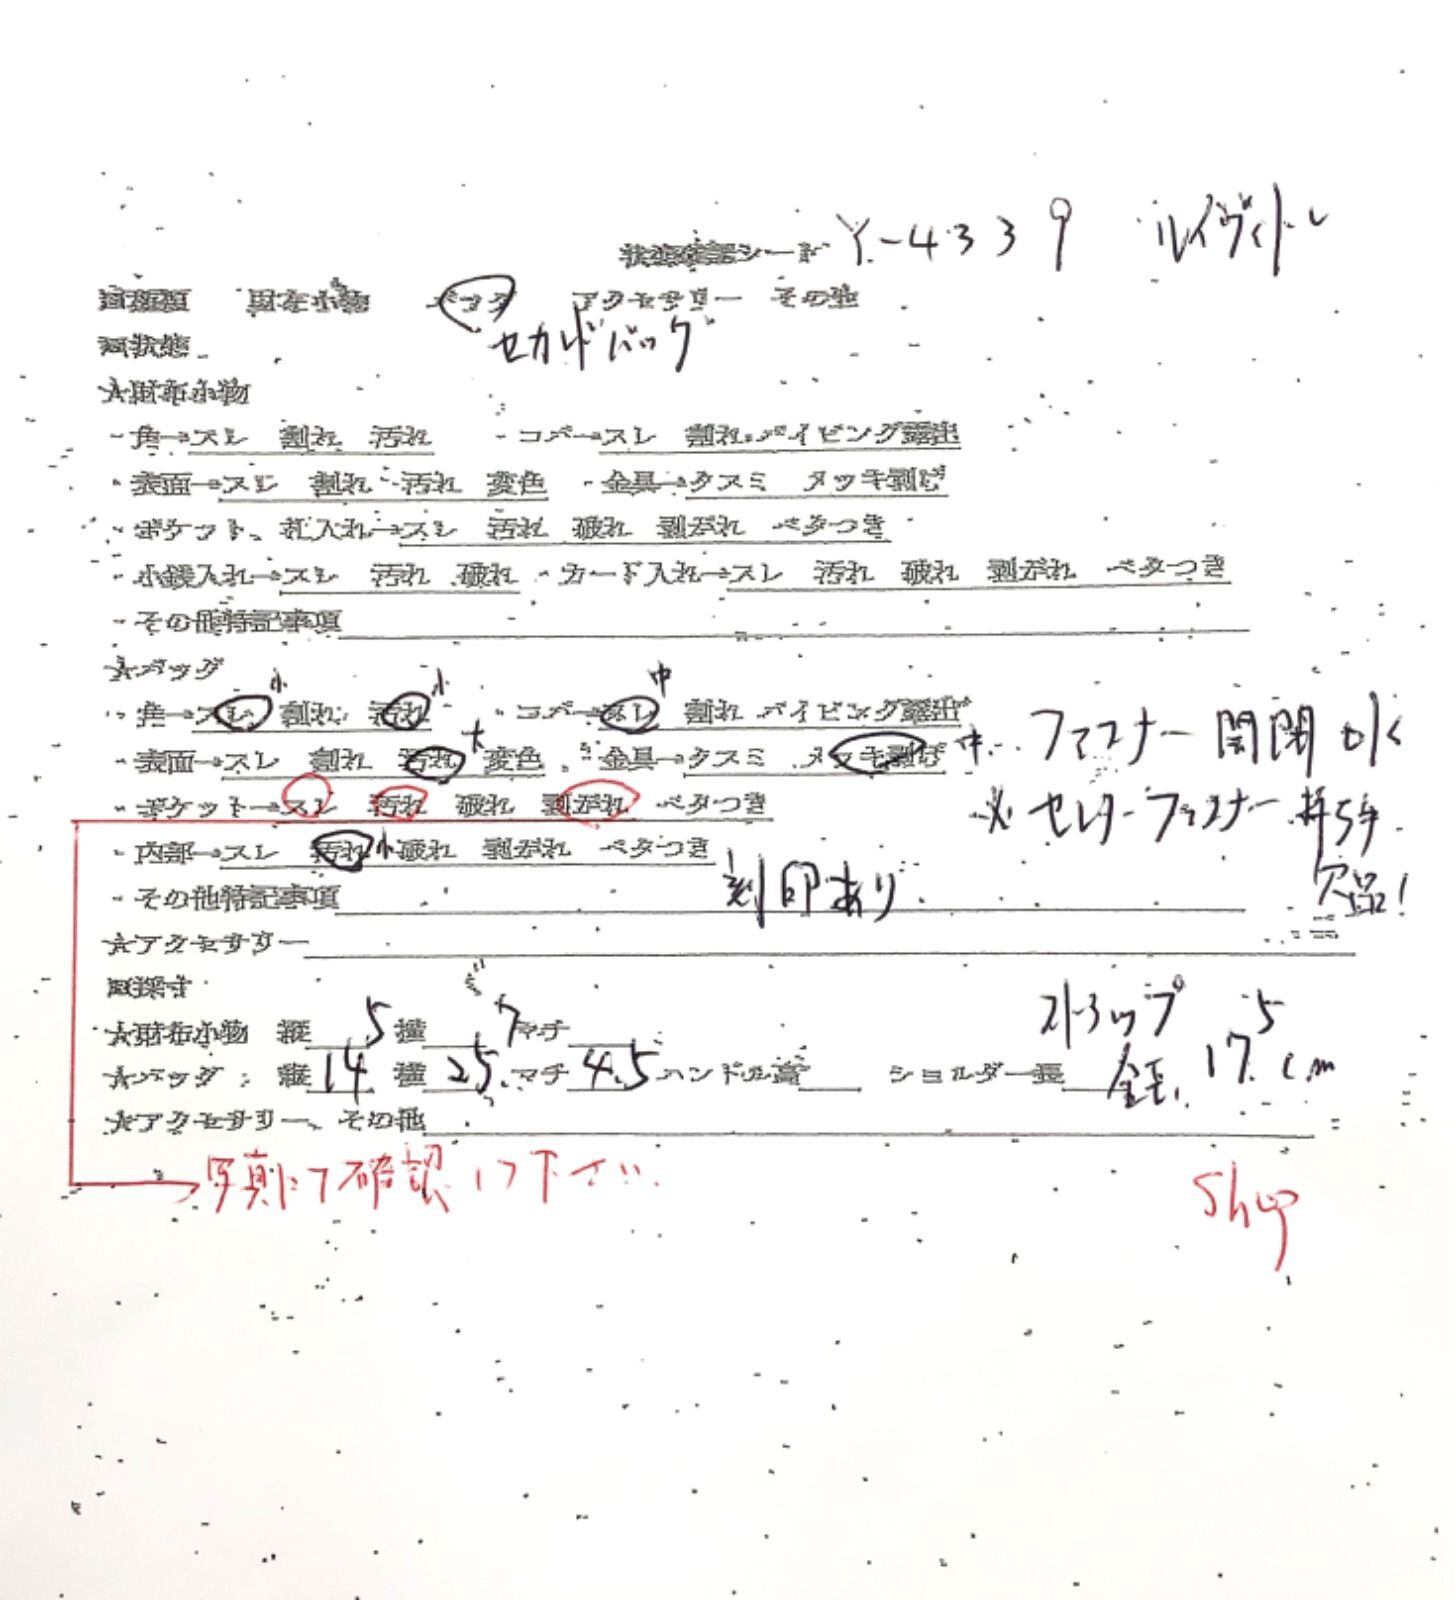 状態確認シート Y-4339 ルイヴィトン
財布小物 バッグ アクセサリー その他
セカンドバッグ
回状態
★財布小物
・角→スレ 割れ 汚れ ・コバ→スレ 割れ パイピング露出
・表面→スレ 割れ 汚れ 変色 ・金具→クスミ メッキ剥げ
・ポケット、札入れ→スレ 汚れ 破れ 剥がれ ベタつき
・小銭入れ→スレ 汚れ 破れ ・カード入れ→スレ 汚れ 破れ 剥がれ ベタつき
・その他特記事項
★バッグ
小 小 中
・角→スレ 割れ 汚れ ・コバ→スレ 割れ パイピング露出
・表面→スレ 割れ 汚れ 大 変色 ・金具→クスミ メッキ剥げ 中 ファスナー開閉OK
・ポケット→スレ 汚れ 破れ 剥がれ ベタつき ※センターファスナー
・内部→スレ 汚れ 小 破れ 剥がれ ベタつき
・その他特記事項 刻印あり 欠品!
★アクセサリー
回採寸
★財布小物 縦 5 横 7 マチ ストラップ 5
★バッグ : 縦 14 横 25 マチ 4.5 ハンドル高 ショルダー長 17 cm
★アクセサリー、その他
写真にて確認して下さい